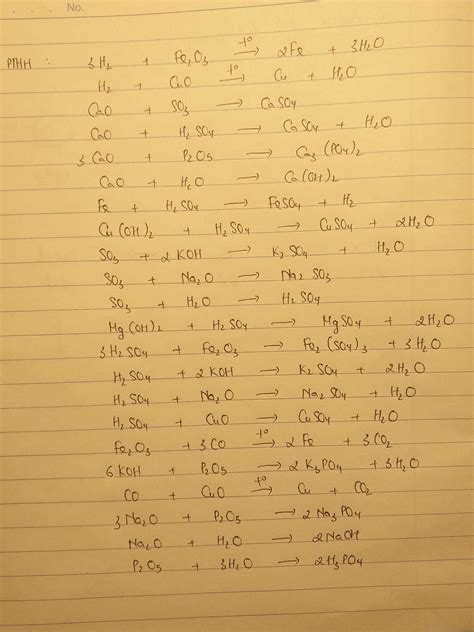 No.
PTHH : 3H₂ + Fe₂O₃ —t°→ 2Fe + 3H₂O
H₂ + CuO —t°→ Cu + H₂O
CaO + SO₃ → CaSO₄
CaO + H₂SO₄ → CaSO₄ + H₂O
3CaO + P₂O₅ → Ca₃(PO₄)₂
CaO + H₂O → Ca(OH)₂
Fe + H₂SO₄ → FeSO₄ + H₂
Cu(OH)₂ + H₂SO₄ → CuSO₄ + 2H₂O
SO₃ + 2KOH → K₂SO₄ + H₂O
SO₃ + Na₂O → Na₂SO₃
SO₃ + H₂O → H₂SO₄
Mg(OH)₂ + H₂SO₄ → MgSO₄ + 2H₂O
3H₂SO₄ + Fe₂O₃ → Fe₂(SO₄)₃ + 3H₂O
H₂SO₄ + 2KOH → K₂SO₄ + 2H₂O
H₂SO₄ + Na₂O → Na₂SO₄ + H₂O
H₂SO₄ + CuO → CuSO₄ + H₂O
Fe₂O₃ + 3CO —t°→ 2Fe + 3CO₂
6KOH + P₂O₅ → 2K₃PO₄ + 3H₂O
CO + CuO —t°→ Cu + CO₂
3Na₂O + P₂O₅ → 2Na₃PO₄
Na₂O + H₂O → 2NaOH
P₂O₅ + 3H₂O → 2H₃PO₄